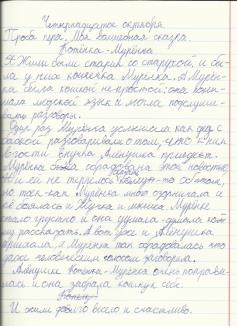 Четырнадцатое октября.
Проба пера. Моя волшебная сказка.
Кошечка-Мурёнка
Жили были старик со старухой, и бы-
ла у них кошечка Мурёнка. А Мурён-
ка была кошкой непростой: она пони-
мала людской язык и могла подслуши-
вать разговоры.
Один раз Мурёнка услышала как дед с
бабкой разговаривали о том, что к ним
в гости внучка Алёнушка приедет.
Мурёнка обрадовалась этой новости,
но так как Мурёнка много озорничала и
её боялась и Жучка и мышка Мурёнке
стало грустно и она думала-думала кому
рассказать. А вот уже и Алёнушка
приехала, и Мурёнка так обрадовалась что
даже человеческим голосом заговорила.
Алёнушке кошечка-Мурёнка очень понрави-
лась и она забрала кошку себе.
И жили долго весело и счастливо.